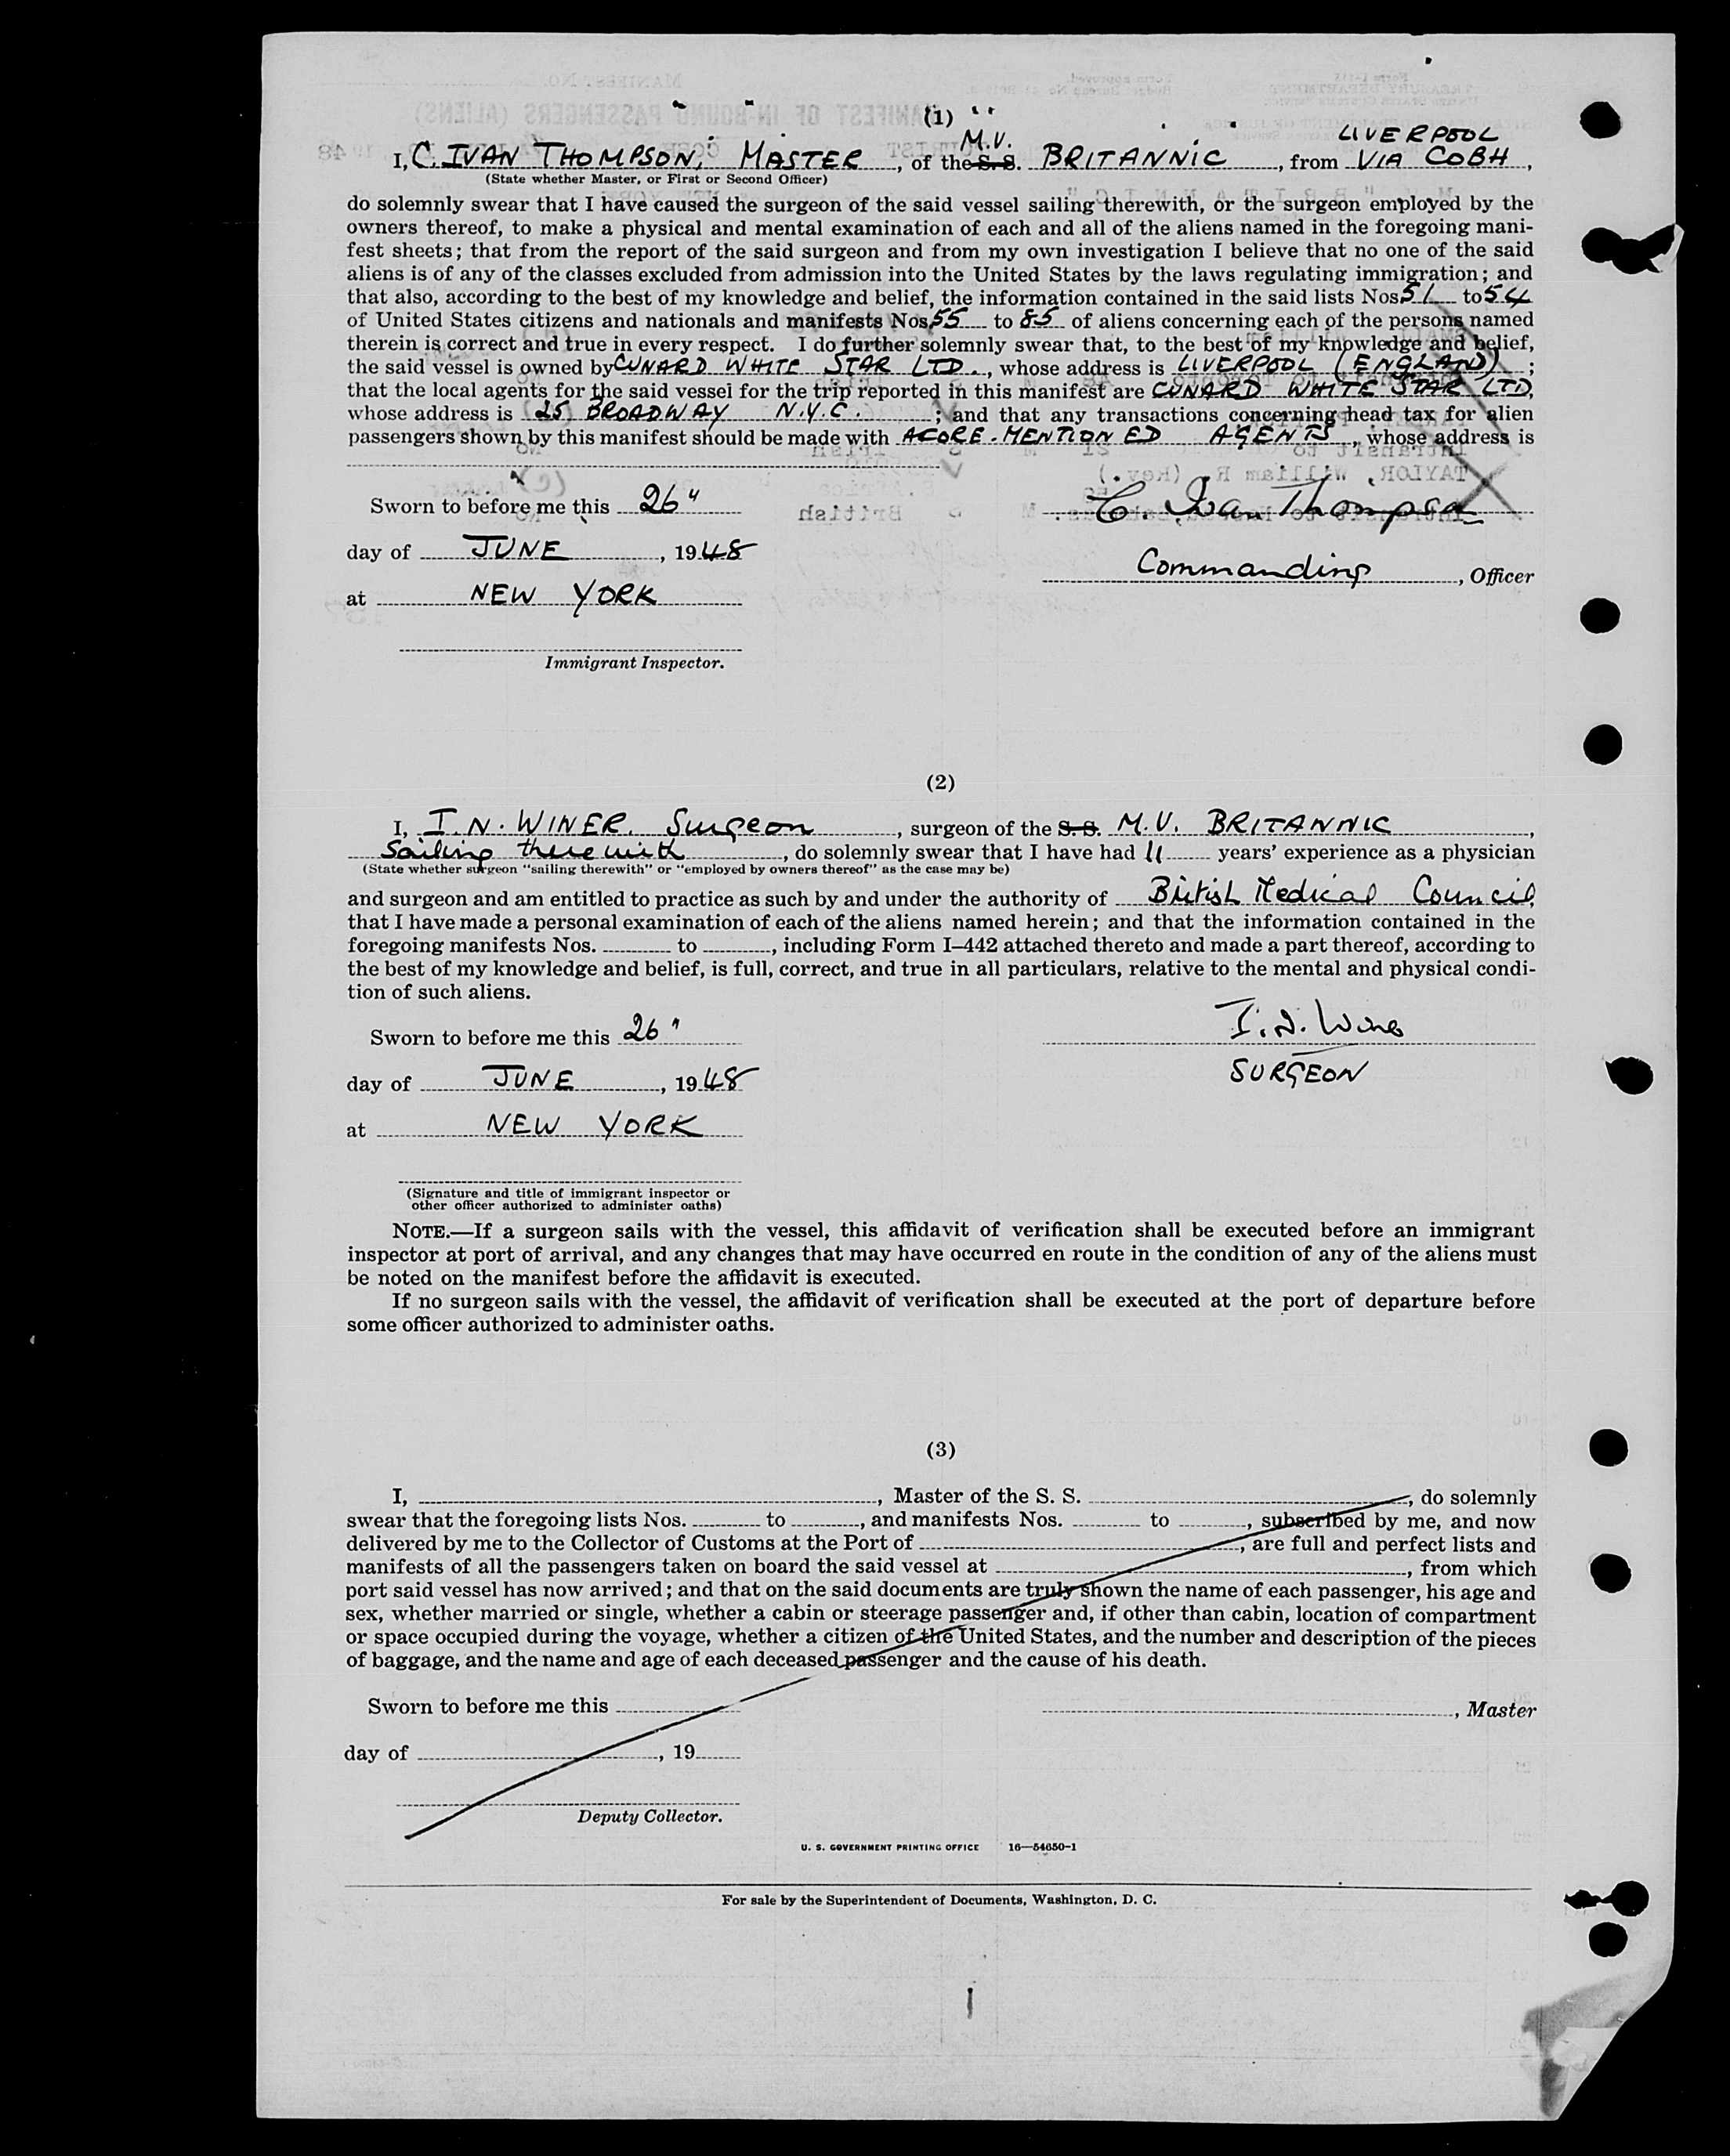 (1)
M.V. LIVERPOOL
I, C. IVAN THOMPSON, MASTER, of the S. S. BRITANNIC, from VIA COBH,
(State whether Master, or First or Second Officer)
do solemnly swear that I have caused the surgeon of the said vessel sailing therewith, or the surgeon employed by the
owners thereof, to make a physical and mental examination of each and all of the aliens named in the foregoing mani-
fest sheets; that from the report of the said surgeon and from my own investigation I believe that no one of the said
aliens is of any of the classes excluded from admission into the United States by the laws regulating immigration; and
that also, according to the best of my knowledge and belief, the information contained in the said lists Nos. 51 to 54
of United States citizens and nationals and manifests Nos. 55 to 85 of aliens concerning each of the persons named
therein is correct and true in every respect. I do further solemnly swear that, to the best of my knowledge and belief,
the said vessel is owned by CUNARD WHITE STAR LTD., whose address is LIVERPOOL (ENGLAND);
that the local agents for the said vessel for the trip reported in this manifest are CUNARD WHITE STAR LTD,
whose address is 25 BROADWAY N.Y.C.; and that any transactions concerning head tax for alien
passengers shown by this manifest should be made with AFORE-MENTIONED AGENTS, whose address is
Sworn to before me this 26" C. Ivan Thompson
day of JUNE, 1948
Commanding, Officer
at NEW YORK
Immigrant Inspector.
(2)
I, I. N. WINER. Surgeon, surgeon of the S. S. M.V. BRITANNIC,
Sailing therewith, do solemnly swear that I have had 11 years' experience as a physician
(State whether surgeon "sailing therewith" or "employed by owners thereof" as the case may be)
and surgeon and am entitled to practice as such by and under the authority of British Medical Council,
that I have made a personal examination of each of the aliens named herein; and that the information contained in the
foregoing manifests Nos. to , including Form I–442 attached thereto and made a part thereof, according to
the best of my knowledge and belief, is full, correct, and true in all particulars, relative to the mental and physical condi-
tion of such aliens.
Sworn to before me this 26" I. N. Winer
day of JUNE, 1948 SURGEON
at NEW YORK
(Signature and title of immigrant inspector or
other officer authorized to administer oaths)
NOTE.—If a surgeon sails with the vessel, this affidavit of verification shall be executed before an immigrant
inspector at port of arrival, and any changes that may have occurred en route in the condition of any of the aliens must
be noted on the manifest before the affidavit is executed.
If no surgeon sails with the vessel, the affidavit of verification shall be executed at the port of departure before
some officer authorized to administer oaths.
(3)
I, , Master of the S. S. , do solemnly
swear that the foregoing lists Nos. to , and manifests Nos. to , subscribed by me, and now
delivered by me to the Collector of Customs at the Port of , are full and perfect lists and
manifests of all the passengers taken on board the said vessel at , from which
port said vessel has now arrived; and that on the said documents are truly shown the name of each passenger, his age and
sex, whether married or single, whether a cabin or steerage passenger and, if other than cabin, location of compartment
or space occupied during the voyage, whether a citizen of the United States, and the number and description of the pieces
of baggage, and the name and age of each deceased passenger and the cause of his death.
Sworn to before me this , Master
day of , 19
Deputy Collector.
U. S. GOVERNMENT PRINTING OFFICE 16—54650-1
For sale by the Superintendent of Documents, Washington, D. C.